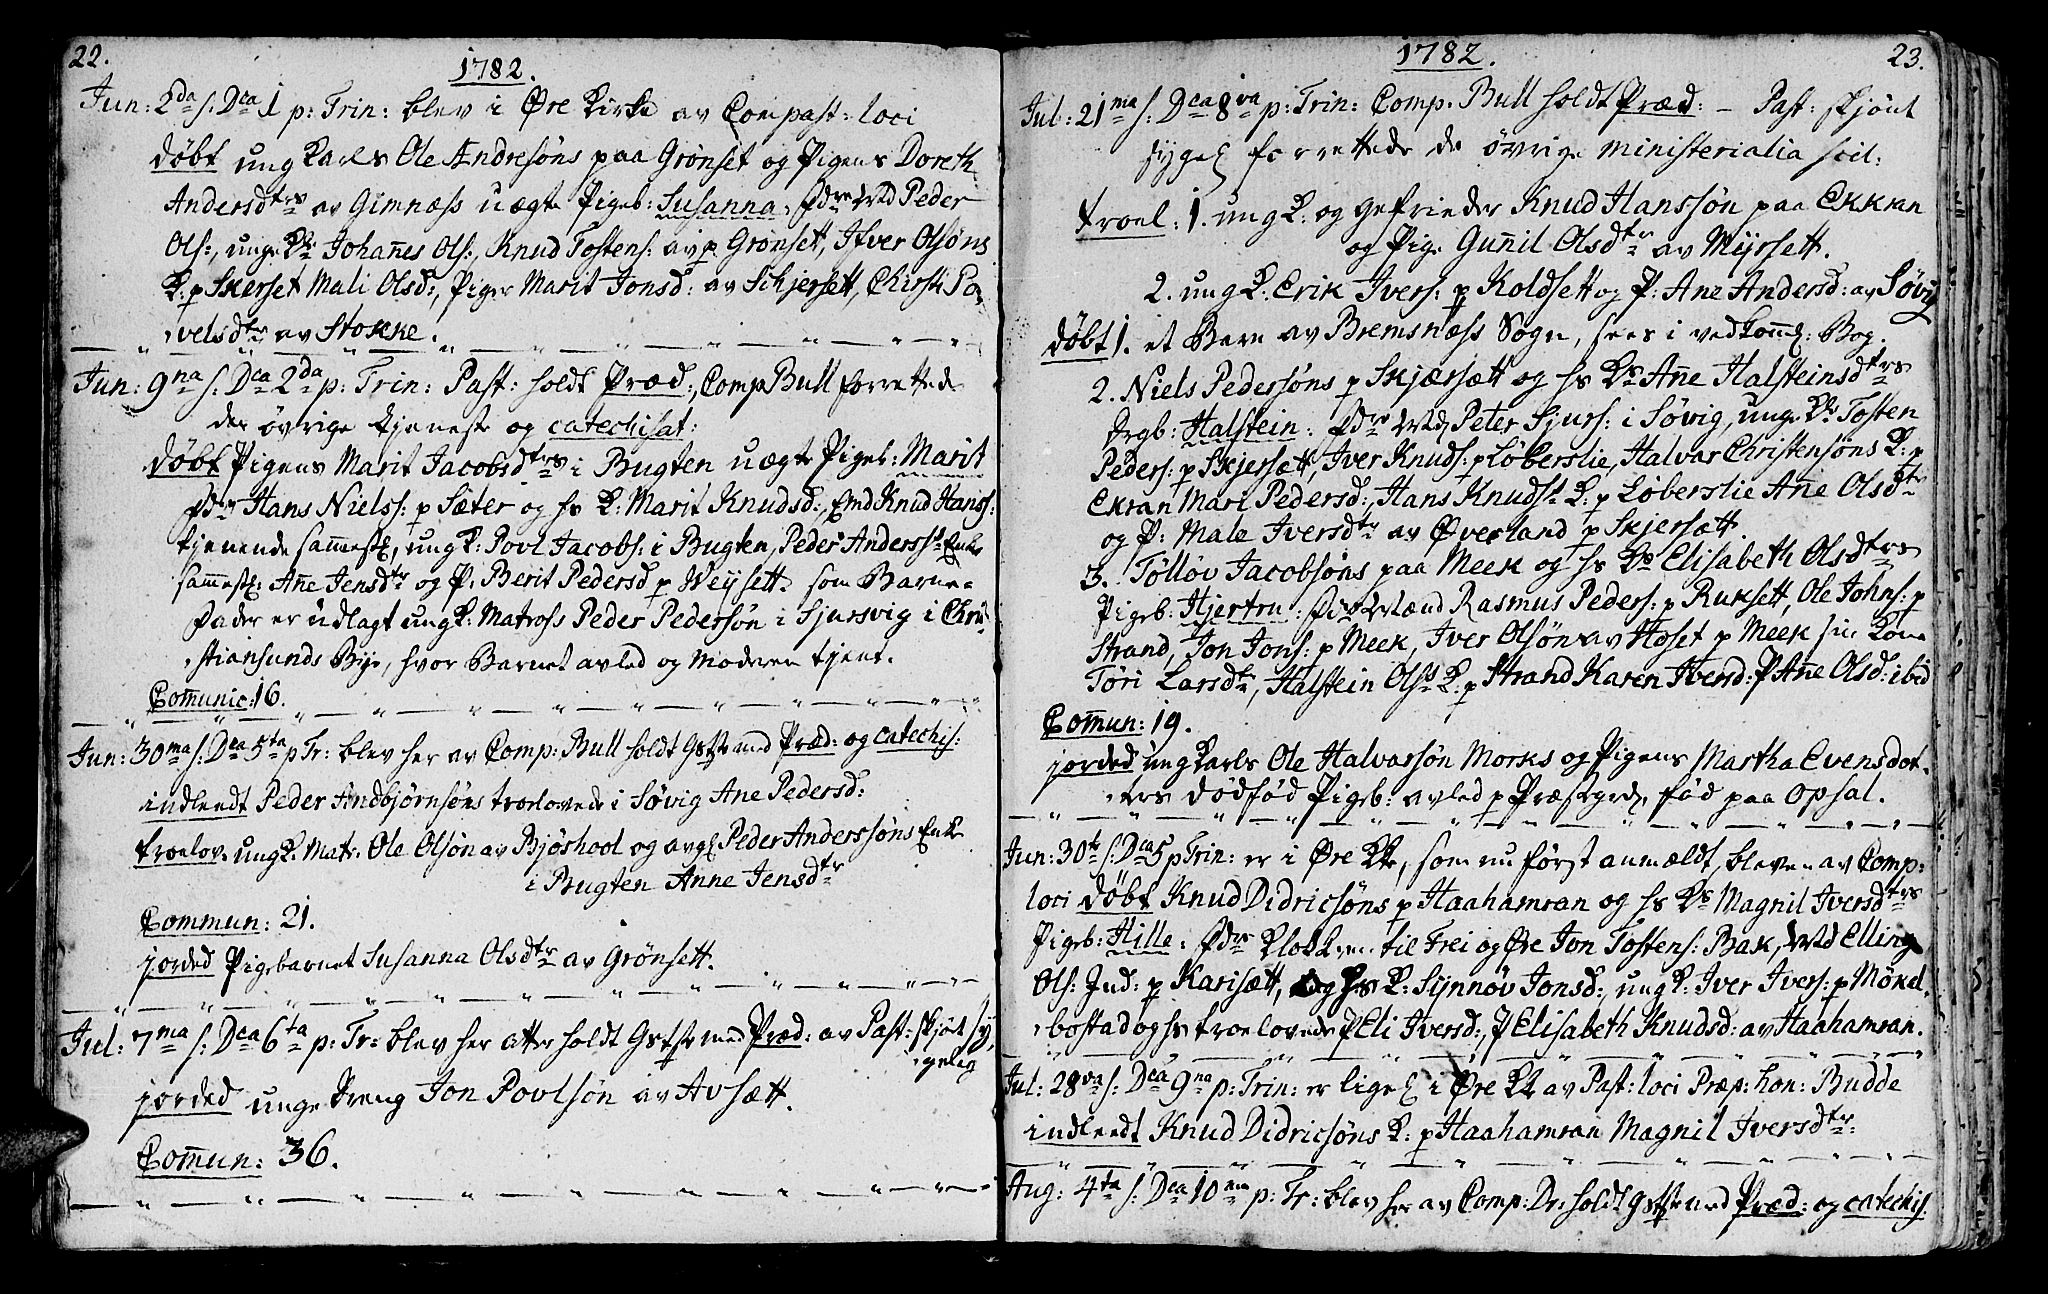 22.
1782.
Jun: 2da s: Dca 1 p: Trin: blev i Øre Kirke av Comp past: loci
døbt ung Karls Ole Andresøns paa Grønset og Pigens Doreth
Andersdtrs av Gimnæss uægte Pigeb: Susanna. Fdre Peder
Ols:, unge Kr Johanes Ols:, Knud Tostens: av p Grønset, Ifver Olsøns
K: p Skerset Mali Olsd:, Piger Marit Jonsd: av Schjersett, Chirsti Po-
velsdtr av Stokke.
Jun: 9na s: Dca 2da p: Trin: Past: holdt Præd:, Comp Bull forrettede
den øvrige tjeneste og catechisat:
døbt Pigens Marit Jacobsdtrs i Bugten uægte Pigeb: Marit
Fdre Hans Niels: p Sæter og hs K: Marit Knudsd:, Knud Hanss:
tjenende sammest, ung K: Povl Jacobs: i Bugten, Peder Anderss Enke
sammest: Ane Jensdtr og P: Berit Pedersd p Weysett. som Barne-
Fader er udlagt ung K: Matross Peder Pedersøn i Sjursvig i Chri-
stiansunds Bye, hvor Barnet avled og Moderen tjent.
Comunic: 16.
Jun: 30ma s: Dca 5ta p Tr: blev her av Comp: Bull holdt Gstste med Præd: og catechis:
indleedt Peder Andbjørnsøns troelovede i Søvig Ane Pedersd:
troelov. ung K: Matr. Ole Olsøn av Bjøshool og avg Peder Anderssøns Enke
i Bugten Anne Jensdtr
Commun: 21.
jorded Pigebarnet Susanna Olsdtr av Grønsett.
Jul: 7ma s: Dca 6ta p: Tr: blev her atter holdt Gstste med Præd: av Past: skjønt sy-
gelig
jorded unge Dreng Jon Povlsøn av Avsætt.
Comun: 36.
1782.
23.
Jul: 21ma s: Dca 8va p: Trin: Comp. Bull holdt Præd: – Past: skjønt
sygel forrettede de øvrige ministerialia scil:
troel: 1. ung K: og gefrieder Knud Hanssøn paa Ekkran
og Pige Gunil Olsdtr av Meysett.
2. ung K: Erik Ivers: p Koldsett og P: Ane Andersd: av Søvig
døbt 1. et Barn av Bremsnæss Sogn, sees i vedkom: Bog.
2. Niels Pedersøns p Skjærsætt og hs Ks Ane Halsteinsdtrs
Drgb: Halstein. Fdre Peter Sjurs: i Søvig, unge Kr Tosten
Peders: p Skjersætt, Iver Knuds: p Løberslie, Halvar Christensøns K: p
Ekran Mari Pedersd:, Hans Knuds K: p Løberslie Ane Olsdtr
og P: Male Iversdtr av Øverland p Skjersætt.
3. Tølløv Jacobsøns paa Meek og hs Ks Elisabeth Olsdtrs
Pigeb: Hjertru. Rasmus Peders: p Ruksett, Ole Johns: p
Strand, Jon Jons: p Meek, Iver Olsøn av Hoset p Meek sin Kone
Tøri Larsdtr, Halstein Ols K: p Strand Karen Iversd: P Ane Olsd: ibid
Comun: 19.
jorded ung Karls Ole Halvarsøn Morks og Pigens Martha Evensdot-
ters dødfød Pigeb: avled p Præstgrd, fød paa Opsal.
Jun: 30te s: Dca 5 p Trin: er i Øre Kke, som nu først anmældt, bleven av Comp:
loci døbt Knud Didricsøns p Haahamran og hs Ks Magnil Iversdtrs
Pigeb: Hille. Fdre Klokkeren til Frei og Øre Jon Tostens: Bak, Elling
Ols: Ind: p Karisætt, og hs K: Synnøv Jonsd:, ung K: Iver Ivers: p Møkel-
bostad og hs troelovede P Eli Iversd:, P Elisabeth Knudsd: av Haahamran.
Jul: 28va s: Dca 9na p: Trin: er ligel i Øre Kk av Past: loci Præp: hon: Budde
indleedt Knud Didricsøns K: p Haahamran Magnil Iversdtr:
Aug: 4ta s: Dca 10ma p: Tr: blev her av Comp: Dr: holdt Gstste med Præd: og catechis.